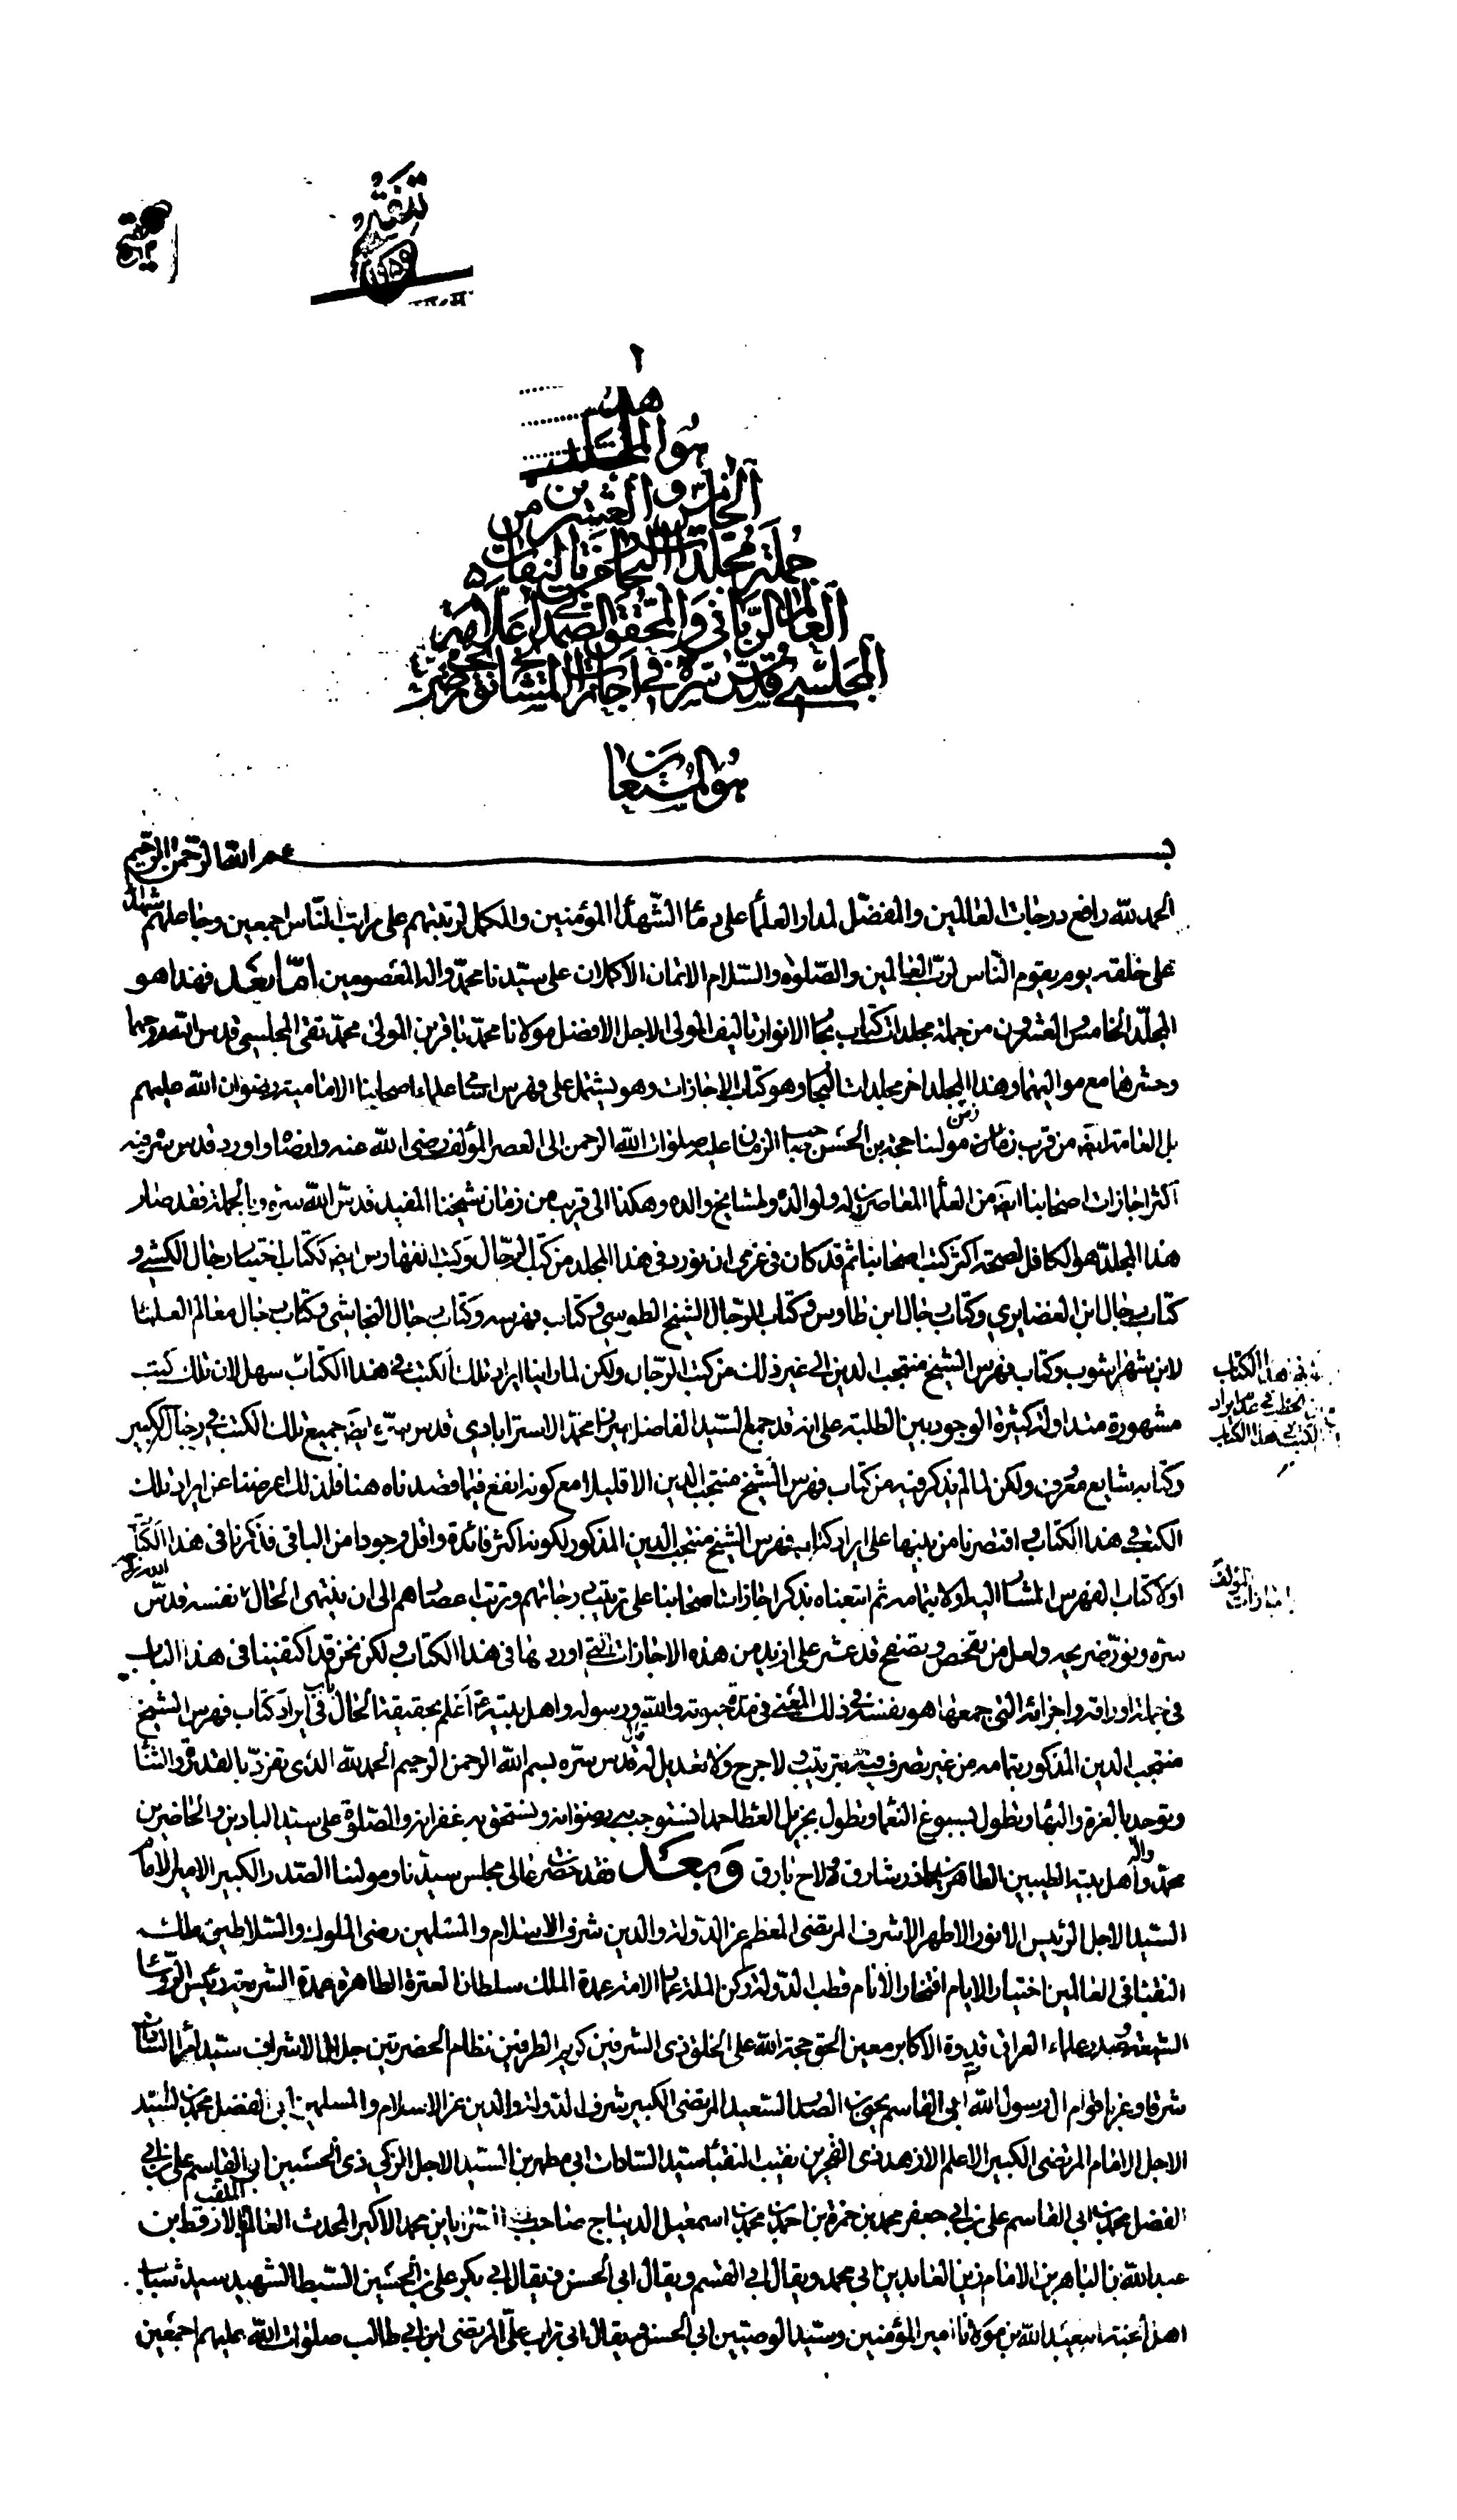 هذا
هو المجلد
الخامس والعشرين من
جملة مجلدات البحار من تاليفات
العالم الرباني والمحقق الصمداني علامة
المجلسي قدس سره في اجازات المشايخ
هو المستعان
بسم الله الرحمن الرحيم
الحمد لله رافع درجات العالمين والمفضل لمداد العلماء على دماء الشهداء المؤمنين والمكمل لرتبتهم على مراتب الناس اجمعين وجاعلهم شهداء
على خلقه يوم يقوم الناس لرب العالمين والصلوة والسلام الاتمان الاكملان على سيدنا محمد واله المعصومين اما بعد فهذا هو
المجلد الخامس والعشرون من جملة مجلدات كتاب بحار الانوار تاليف المولى الاجل الافضل مولانا محمد باقر بن المولى محمد تقي المجلسي قدس الله روحهما
وحشرهما مع مواليهما وهذا المجلد اخر مجلدات البحار وهو كتاب الاجازات وهو يشتمل على فهرس اسامي علماء اصحابنا الامامية رضوان الله عليهم
بل العامة ايضا من قرب زمان مولينا حجة بن الحسن صاحب الزمان عليه صلوات الله الرحمن الى العصر المؤلف رضي الله عنه وارضاه واورد قدس سره فيه
اكثر اجازات اصحابنا ايضا من العلماء المعاصرين له ولوالده ولمشايخ والده وهكذا الى قريب من زمان شيخنا المفيد قدس الله سره وبالجملة فقد صار
هذا المجلد هو الكافل لصحة اكثر كتب اصحابنا ثم قد كان في عزمي ان نورد في هذا المجلد من كتب الرجال وكتب الفهارس ايضا ككتاب اختيار رجال الكشي و
كتاب رجال ابن الغضايري وكتاب رجال ابن طاوس وكتاب الرجال الشيخ الطوسي وكتاب فهرسه وكتاب رجال النجاشي وكتاب رجال معالم العلماء
لابن شهراشوب وكتاب فهرس الشيخ منتجب الدين الى غير ذلك من كتب الرجال ولكن لما راينا ايراد تلك الكتب في هذا الكتاب سهل لان تلك كتب
مشهورة متداولة كثيرة الوجود بين الطلبة على انه قد جمع السيد الفاضل ميرزا محمد الاسترابادي قدس سره ايضا جميع تلك الكتب في رجال الكبير
وكتابه شايع معروف ولكن لما لم يذكر فيه من كتاب فهرس الشيخ منتجب الدين الا قليلا مع كونه انفع فيما قصدناه هنا فلذلك اعرضنا عن ايراد تلك
الكتب في هذا الكتاب واقتصرنا من بينها على ايراد كتاب فهرس الشيخ منتجب الدين المذكور لكونه اكثر فائدة واقل وجودا من الباقي فذكرنا في هذا الكتاب
اولا كتاب الفهرس المشار اليه اولا بتمامه ثم اتبعناه بذكر اجازات اصحابنا على ترتيب درجاتهم وترتيب اعصارهم الى ان ينتهي الحال نفسه قدس
سره ونور ضريحه ولعل من تفحص وتصفح قد عثر على ازيد من هذه الاجازات التي اوردناها في هذا الكتاب ولكن نحن قد اكتفينا في هذا الباب
في جملة اوراقه واجزائه التي جمعها هو بنفسه في ذلك المعنى في مدة حيوته والله ورسوله واهل بيته اعلم بحقيقة الحال باب في ايراد كتاب فهرس الشيخ
منتجب الدين المذكور بتمامه من غير تصرف فيه بترتيب ولا جرح ولا تعديل قال قدس سره بسم الله الرحمن الرحيم الحمد لله الذي تفرد بالقدم والثناء
وتوحد بالعزة والبهاء وتطول لسبوغ النعماء وتطول بجزيل العطا حمدا نستوجب به رضوانه ونستحق به غفرانه والصلوة على سيد البادين والحاضرين
محمد واله واهل بيته الطيبين الطاهرين ما ذر شارق ولاح بارق وبعد فقد حضرت عالى مجلس سيدنا ومولينا الصدر الكبير الامير الامام
السيد الاجل الرئيس الانور الاطهر الاشرف المرتضى المعظم عز الدولة والدين شرف الاسلام والمسلمين رضي الملوك والسلاطين ملك
النقباء في العالمين اختيار الايام افتخار الانام قطب الدولة ركن الملة عماد الامة عمدة الملك سلطان العترة الطاهرة عمدة الشريعة رئيس الروساء
الشيعة وصدر علماء العراق قدوة الاكابر معين الحق حجة الله على الخلق ذي الشرفين كريم الطرفين نظام الحضرتين جلال الاشراف سيد امراء السادات
شرقا وغربا قوام ال رسول الله ابي القاسم يحيى بن الصدر السعيد المرتضى الكبير شرف الدولة والدين عز الاسلام والمسلمين ابي الفضل محمد بن السيد
الاجل الامام المرتضى الكبير الاعلم الازهد ذي الفخرين نقيب النقباء سيد السادات ابي مطهر بن السيد الاجل الزكي ذي الحسبين ابي القاسم علي بن ابي
الفضل محمد بن ابي القاسم علي بن ابي جعفر محمد بن حمزة بن احمد بن محمد بن اسمعيل الديباج صاحب السرايا بن محمد الاكبر المحدث العالم الملقب بالارقط بن
عبد الله الباهر بن الامام زين العابدين ابي محمد ويقال ابي القسم ويقال ابي الحسن ويقال ابي بكر علي بن الحسين السبط الشهيد سيد شباب
اهل الجنة ابي عبد الله بن مولانا امير المؤمنين وسيد الوصيين ابي الحسن ويقال ابي تراب علي المرتضى ابن ابي طالب صلوات الله عليهم اجمعين
هذا الكتاب
ايراد
الكتب في هذا الكتاب
المؤلف